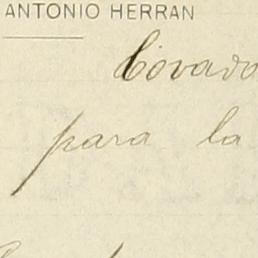 ANTONIO HERRAN
Covado
para la